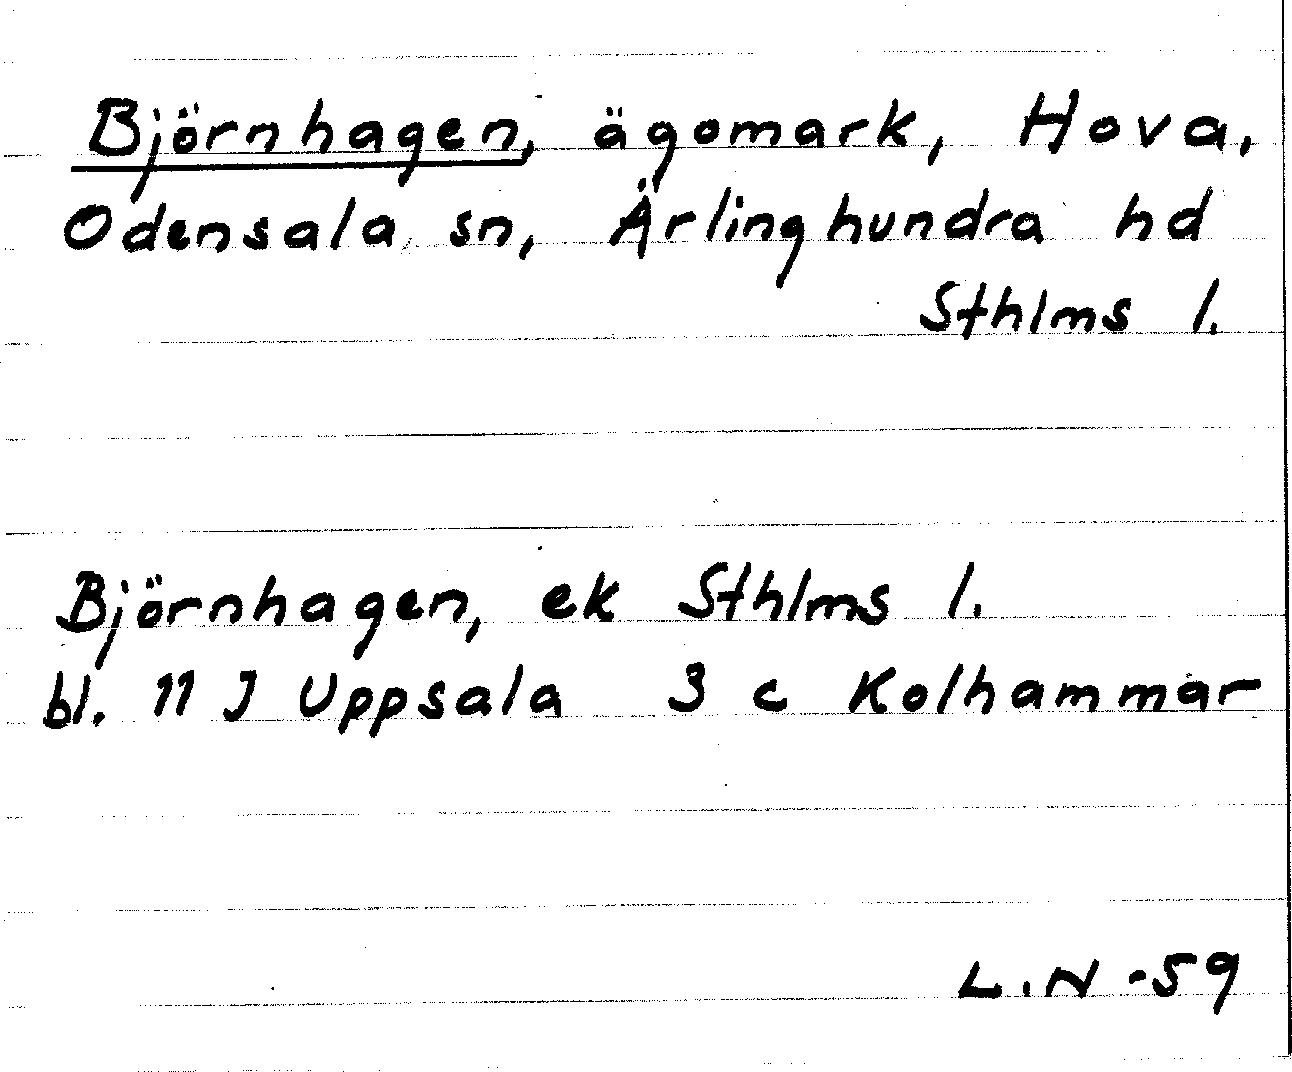 Björnhagen, ägomark, Hova,
Odensala sn, Ärlinghundra hd
Sthlms l.
Björnhagen, ek Sthlms l.
bl. 11 J Uppsala 3 c Kolhammar
L.N -59